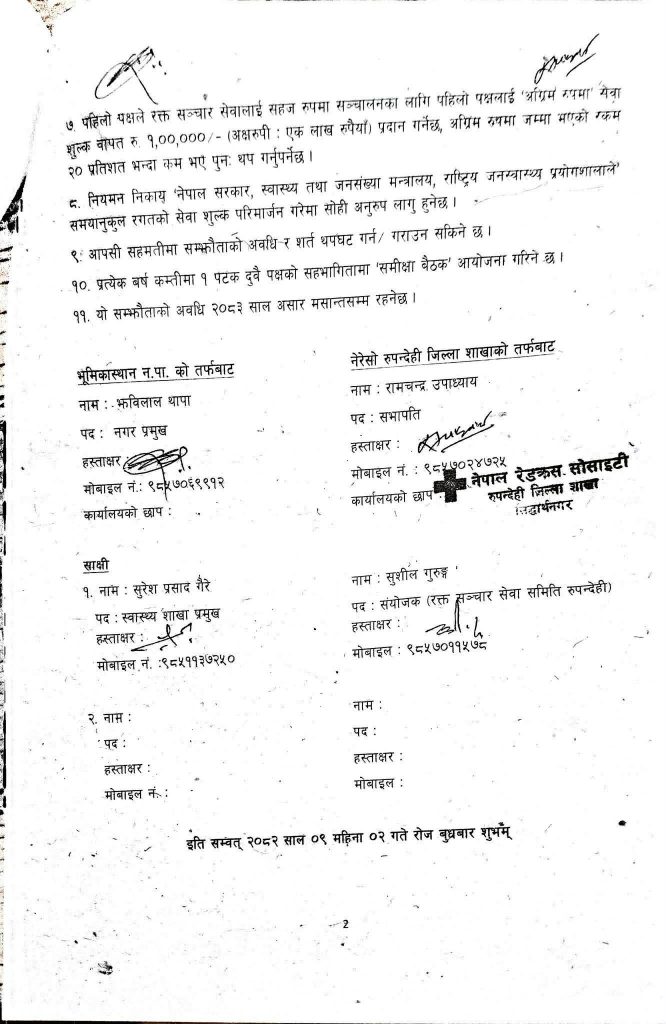 ७. पहिलो पक्षले रक्त सञ्चार सेवालाई सहज रुपमा सञ्चालनका लागि पहिलो पक्षलाई 'अग्रिम रुपमा' सेवा
शुल्क वापत रु. १,००,०००/- (अक्षरुपी : एक लाख रुपैयाँ) प्रदान गर्नेछ, अग्रिम रुषमा जम्मा भएको रकम
२० प्रतिशत भन्दा कम भए पुनः थप गर्नुपर्नेछ ।
८. नियमन निकाय 'नेपाल सरकार, स्वास्थ्य तथा जनसंख्या मन्त्रालय, राष्ट्रिय जनस्वास्थ्य प्रयोगशालाले'
समयानुकुल रगतको सेवा शुल्क परिमार्जन गरेमा सोही अनुरुप लागु हुनेछ ।
९. आपसी सहमतीमा सम्झौताको अवधि र शर्त थपघट गर्न/ गराउन सकिने छ ।
१०. प्रत्येक बर्ष कम्तीमा १ पटक दुवै पक्षको सहभागितामा 'समीक्षा बैठक' आयोजना गरिने छ ।
११. यो सम्झौताको अवधि २०८३ साल असार मसान्तसम्म रहनेछ ।
भूमिकास्थान न.पा. को तर्फबाट
नाम : झविलाल थापा
पद : नगर प्रमुख
हस्ताक्षर
मोबाइल नं.: ९८५७०६९९१२
कार्यालयको छाप :
नेरेसो रुपन्देही जिल्ला शाखाको तर्फबाट
नाम : रामचन्द्र उपाध्याय
पद : सभापति
हस्ताक्षर :
मोबाइल नं. : ९८५७०२४७२५
कार्यालयको छाप
नेपाल रेडक्रस सोसाइटी
रुपन्देही जिल्ला शाखा
सिद्धार्थनगर
साक्षी
१. नाम : सुरेश प्रसाद गैरे
पद : स्वास्थ्य शाखा प्रमुख
हस्ताक्षर :
मोबाइल नं. :९८५११३७२५०
नाम : सुशील गुरुङ्ग
पद : संयोजक (रक्त सञ्चार सेवा समिति रुपन्देही)
हस्ताक्षर :
मोबाइल : ९८५७०११५७८
२. नाम :
पद :
हस्ताक्षर :
मोबाइल नं. :
नाम :
पद :
हस्ताक्षर :
मोबाइल :
इति सम्वत् २०८२ साल ०९ महिना ०२ गते रोज बुध्रबार शुभम्
2